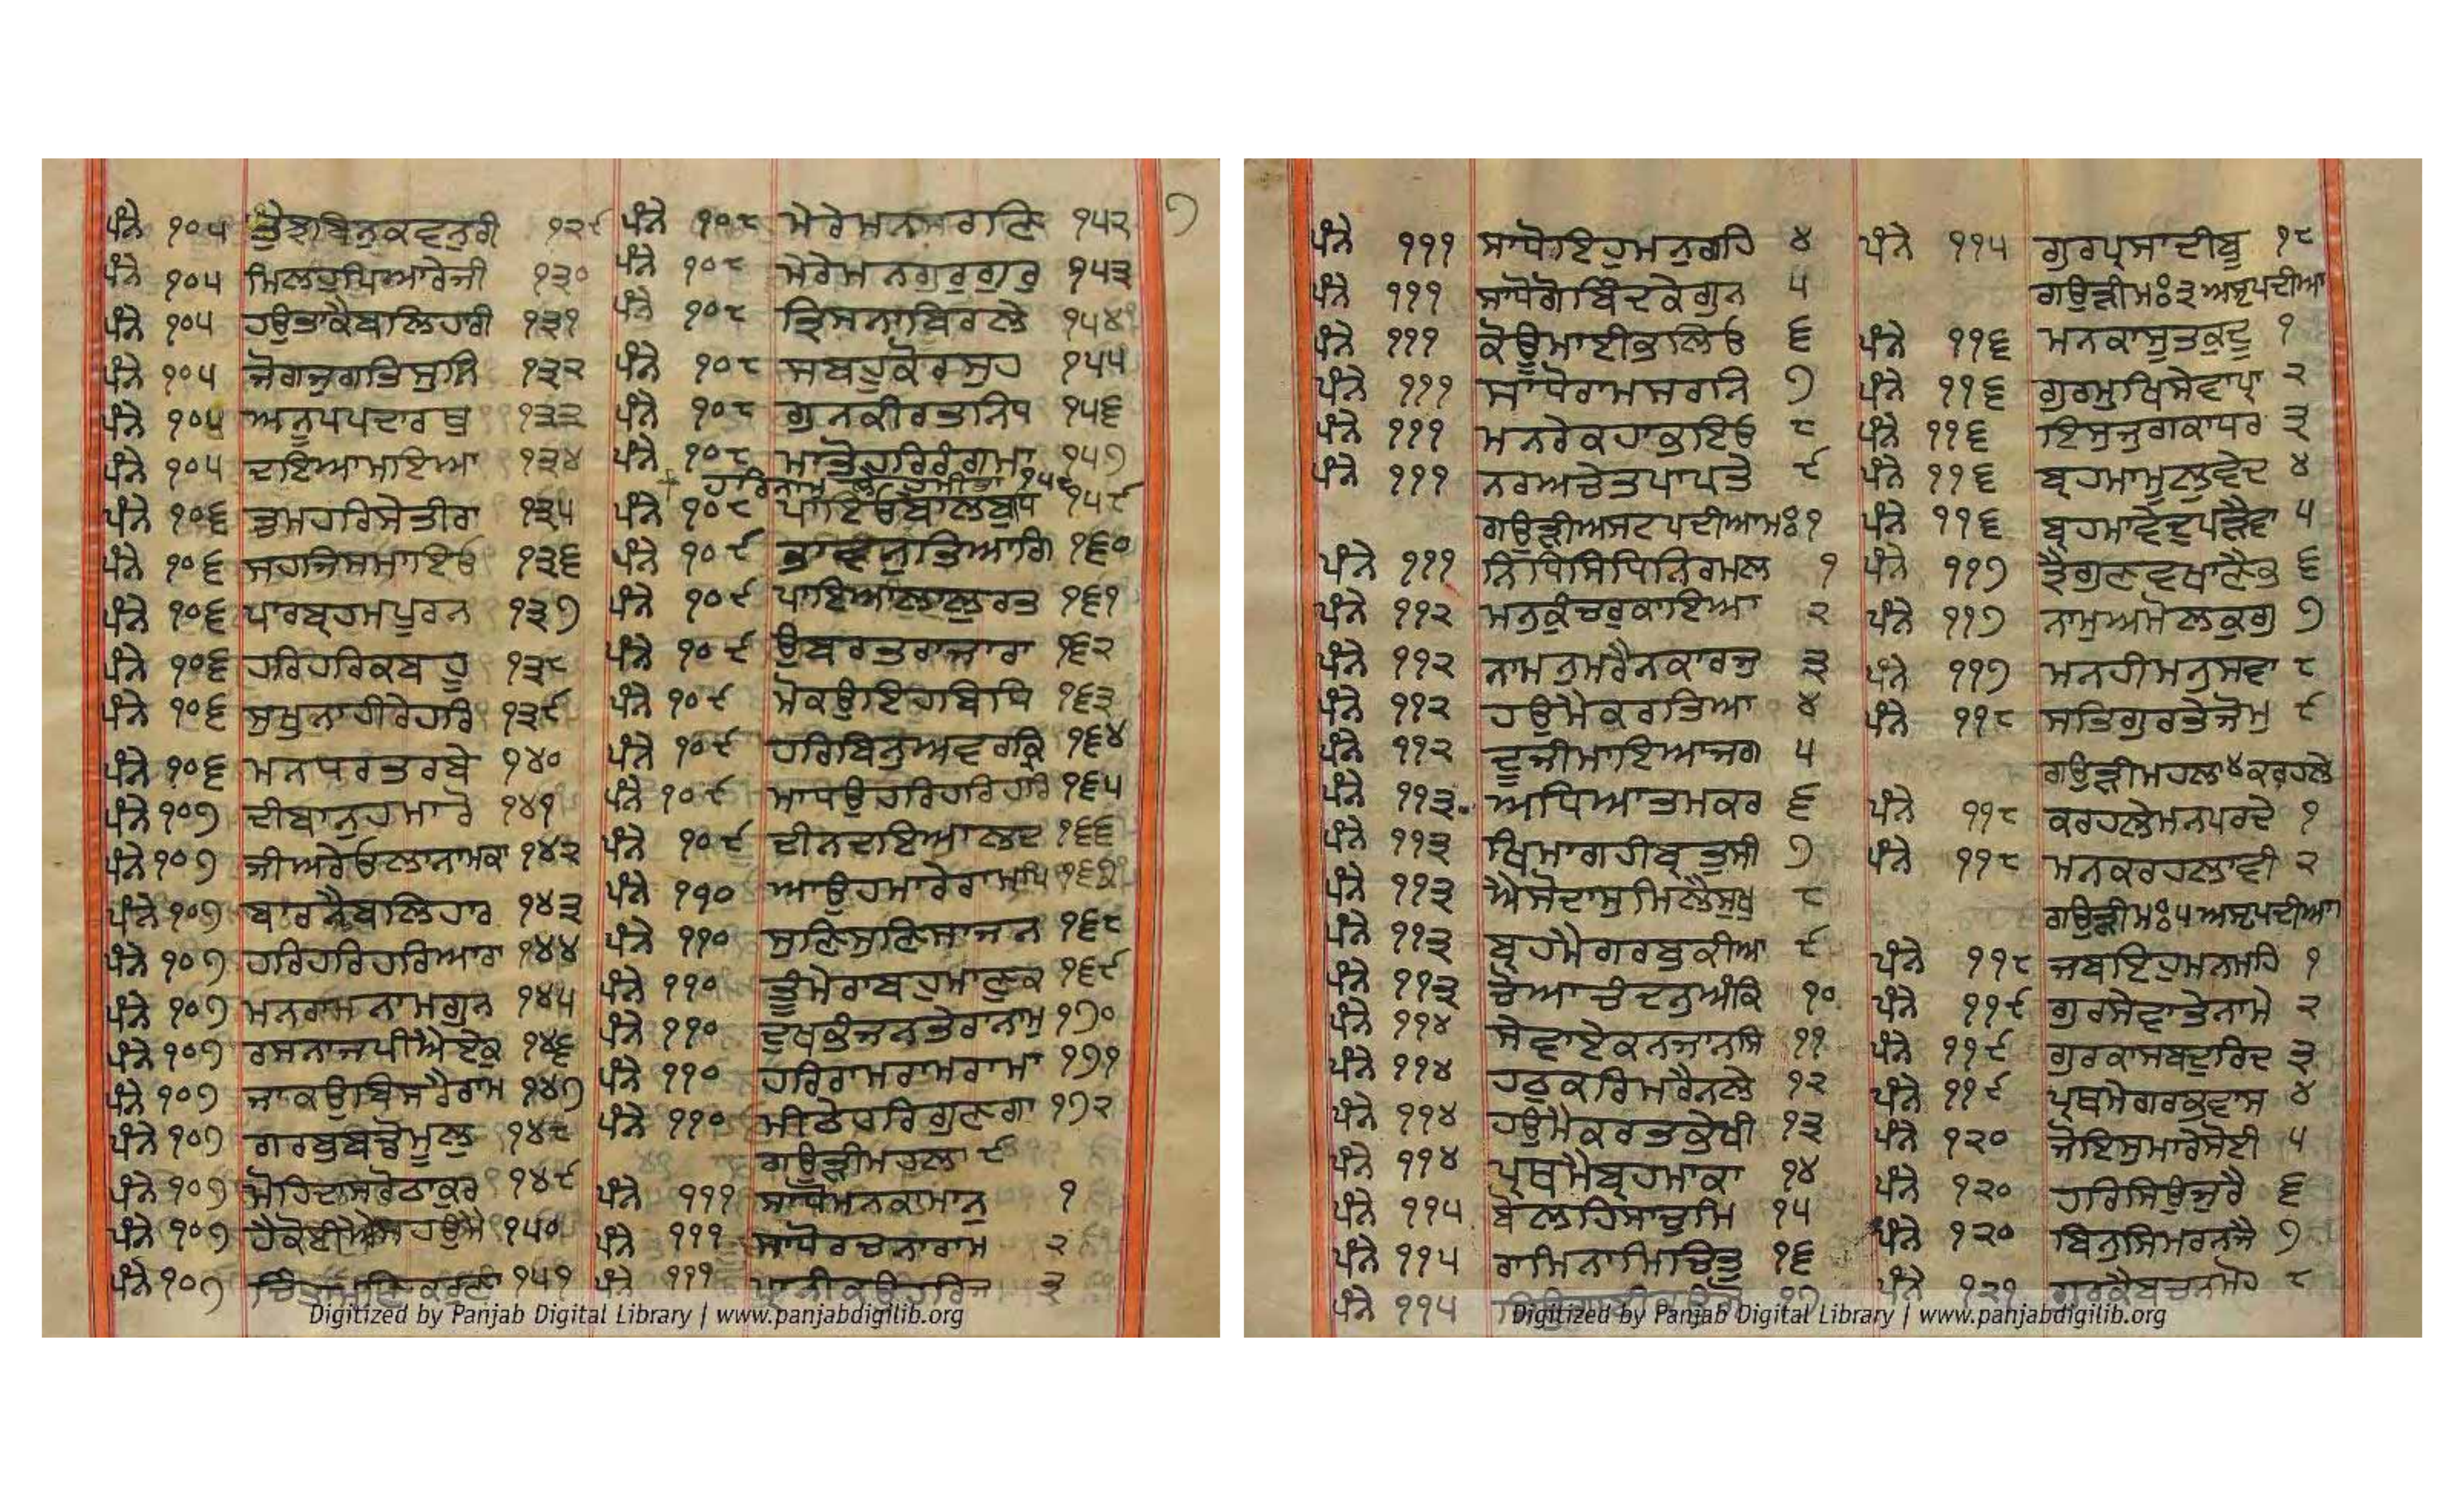 ਪੰਨੇ ੧੦੫ ਤੁਝ ਬਿਨੁ ਕਵਨੁ ਰੀ ੧੨੯
ਪੰਨੇ ੧੦੫ ਮਿਲਹੁ ਪਿਆਰੇ ਜੀ ੧੩੦
ਪੰਨੇ ੧੦੫ ਹਉ ਤਾਕੈ ਬਲਿਹਾਰੀ ੧੩੧
ਪੰਨੇ ੧੦੫ ਜੋਗ ਜੁਗਤਿ ਸੁਨਿ ੧੩੨
ਪੰਨੇ ੧੦੫ ਅਨੂਪ ਪਦਾਰਥੁ ੧੩੩
ਪੰਨੇ ੧੦੫ ਦਇਆ ਮਾਇਆ ੧੩੪
ਪੰਨੇ ੧੦੬ ਤੁਮ ਹਰਿ ਸੇਤੀ ਰਾ ੧੩੫
ਪੰਨੇ ੧੦੬ ਸਹਜਿ ਸਮਾਇਓ ੧੩੬
ਪੰਨੇ ੧੦੬ ਪਾਰਬ੍ਰਹਮ ਪੂਰਨ ੧੩੭
ਪੰਨੇ ੧੦੬ ਹਰਿ ਹਰਿ ਕਬਹੂ ੧੩੮
ਪੰਨੇ ੧੦੬ ਸੁਖੁ ਨਾਹੀ ਰੇ ਹਰਿ ੧੩੯
ਪੰਨੇ ੧੦੬ ਮਨ ਧਰ ਤਰਬੇ ੧੪੦
ਪੰਨੇ ੧੦੭ ਦੀਬਾਨੁ ਹਮਾਰੋ ੧੪੧
ਪੰਨੇ ੧੦੭ ਜੀਅਰੇ ਓਲਾ ਨਾਮ ਕਾ ੧੪੨
ਪੰਨੇ ੧੦੭ ਬਾਰਨੈ ਬਲਿਹਾਰ ੧੪੩
ਪੰਨੇ ੧੦੭ ਹਰਿ ਹਰਿ ਹਰਿ ਆਰਾ ੧੪੪
ਪੰਨੇ ੧੦੭ ਮਨ ਰਾਮ ਨਾਮ ਗੁਨ ੧੪੫
ਪੰਨੇ ੧੦੭ ਰਸਨਾ ਜਪੀਐ ਏਕੁ ੧੪੬
ਪੰਨੇ ੧੦੭ ਜਾ ਕਉ ਬਿਸਰੈ ਰਾਮ ੧੪੭
ਪੰਨੇ ੧੦੭ ਗਰਬੁ ਬਡੋ ਮੂਲੁ ੧੪੮
ਪੰਨੇ ੧੦੭ ਮੋਹਿ ਦਾਸਰੋ ਠਾਕੁਰ ੧੪੯
ਪੰਨੇ ੧੦੭ ਹੈ ਕੋਈ ਐਸਾ ਹਉਮੈ ੧੫੦
ਪੰਨੇ ੧੦੭ ਚਿੰਤਾਮਣਿ ਕਰੁਣਾ ੧੫੧
ਪੰਨੇ ੧੦੮ ਮੇਰੇ ਮਨ ਸਰਣਿ ੧੫੨ ੭
ਪੰਨੇ ੧੦੮ ਮੇਰੇ ਮਨ ਗੁਰੁ ਗੁਰੁ ੧੫੩
ਪੰਨੇ ੧੦੮ ਤ੍ਰਿਸਨਾ ਬਿਰਲੇ ੧੫੪
ਪੰਨੇ ੧੦੮ ਸਬਹੂ ਕੋ ਰਸੁ ਹ ੧੫੫
ਪੰਨੇ ੧੦੮ ਗੁਨ ਕੀਰਤਿ ਨਿਧ ੧੫੬
ਪੰਨੇ ੧੦੮ ਮਾਤੋ ਹਰਿ ਰੰਗ ਮਾ ੧੫੭
ਹਰਿ ਨਾਮ ੧੫੮
ਪੰਨੇ ੧੦੮ ਪਾਇਓ ਬਾਲ ਬੁਧਿ ੧੫੯
ਪੰਨੇ ੧੦੯ ਭਾਵਨੁ ਤਿਆਗਿ ੧੬੦
ਪੰਨੇ ੧੦੯ ਪਾਇਆ ਲਾਲੁ ਰਤ ੧੬੧
ਪੰਨੇ ੧੦੯ ਉਬਰਤ ਰਾਜਾ ਰਾ ੧੬੨
ਪੰਨੇ ੧੦੯ ਮੋ ਕਉ ਇਹ ਬਿਧਿ ੧੬੩
ਪੰਨੇ ੧੦੯ ਹਰਿ ਬਿਨੁ ਅਵਰ ਕ੍ਰਿ ੧੬੪
ਪੰਨੇ ੧੦੯ ਮਾਧਉ ਹਰਿ ਹਰਿ ਹਰਿ ੧੬੫
ਪੰਨੇ ੧੦੯ ਦੀਨ ਦਇਆਲ ਦ ੧੬੬
ਪੰਨੇ ੧੧੦ ਆਉ ਹਮਾਰੈ ਰਾਮ ਪਿ ੧੬੭
ਪੰਨੇ ੧੧੦ ਸੁਣਿ ਸੁਣਿ ਸਾਜਨ ੧੬੮
ਪੰਨੇ ੧੧੦ ਤੂੰ ਮੇਰਾ ਬਹੁ ਮਾਣੁ ਕ ੧੬੯
ਪੰਨੇ ੧੧੦ ਦੁਖ ਭੰਜਨ ਤੇਰਾ ਨਾਮੁ ੧੭੦
ਪੰਨੇ ੧੧੦ ਹਰਿ ਰਾਮ ਰਾਮ ਰਾਮਾ ੧੭੧
ਪੰਨੇ ੧੧੦ ਮੀਠੇ ਹਰਿ ਗੁਣ ਗਾ ੧੭੨
ਗਉੜੀ ਮਹਲਾ ੯
ਪੰਨੇ ੧੧੧ ਸਾਧੋ ਮਨ ਕਾ ਮਾਨੁ ੧
ਪੰਨੇ ੧੧੧ ਸਾਧੋ ਰਚਨਾ ਰਾਮ ੨
ਪੰਨੇ ੧੧੧ ਪ੍ਰਾਨੀ ਕਉ ਹਰਿ ਜ ੩
Digitized by Panjab Digital Library | www.panjabdigilib.org
ਪੰਨੇ ੧੧੧ ਸਾਧੋ ਇਹੁ ਮਨੁ ਗਹਿ ੪
ਪੰਨੇ ੧੧੧ ਸਾਧੋ ਗੋਬਿੰਦ ਕੇ ਗੁਨ ੫
ਪੰਨੇ ੧੧੧ ਕੋਊ ਮਾਈ ਭੁਲਿਓ ੬
ਪੰਨੇ ੧੧੧ ਸਾਧੋ ਰਾਮ ਸਰਨਿ ੭
ਪੰਨੇ ੧੧੧ ਮਨ ਰੇ ਕਹਾ ਭਇਓ ੮
ਪੰਨੇ ੧੧੧ ਨਰ ਅਚੇਤ ਪਾਪ ਤੇ ੯
ਗਉੜੀ ਅਸਟਪਦੀਆ ਮਃ ੧
ਪੰਨੇ ੧੧੧ ਨਿਧਿ ਸਿਧਿ ਨਿਰਮਲ ੧
ਪੰਨੇ ੧੧੨ ਮਨੁ ਕੁੰਚਰੁ ਕਾਇਆ ੨
ਪੰਨੇ ੧੧੨ ਨਾ ਮਨੁ ਮਰੈ ਨ ਕਾਰਜੁ ੩
ਪੰਨੇ ੧੧੨ ਹਉਮੈ ਕਰਤਿਆ ੪
ਪੰਨੇ ੧੧੨ ਦੂਜੀ ਮਾਇਆ ਜਗ ੫
ਪੰਨੇ ੧੧੩ ਅਧਿਆਤਮ ਕਰ ੬
ਪੰਨੇ ੧੧੩ ਖਿਮਾ ਗਹੀ ਬ੍ਰਤੁ ਸੀ ੭
ਪੰਨੇ ੧੧੩ ਐਸੋ ਦਾਸੁ ਮਿਲੈ ਸੁਖੁ ੮
ਪੰਨੇ ੧੧੩ ਬ੍ਰਹਮੈ ਗਰਬੁ ਕੀਆ ੯
ਪੰਨੇ ੧੧੩ ਚੋਆ ਚੰਦਨੁ ਅੰਕਿ ੧੦
ਪੰਨੇ ੧੧੪ ਸੇਵਾ ਏਕ ਨ ਜਾਨਸਿ ੧੧
ਪੰਨੇ ੧੧੪ ਹਠੁ ਕਰਿ ਮਰੈ ਨ ਲੇ ੧੨
ਪੰਨੇ ੧੧੪ ਹਉਮੈ ਕਰਤ ਭੇਖੀ ੧੩
ਪੰਨੇ ੧੧੪ ਪ੍ਰਥਮੈ ਬ੍ਰਹਮਾ ਕਾ ੧੪
ਪੰਨੇ ੧੧੫ ਬੋਲਹਿ ਸਾਚੁ ਮਿ ੧੫
ਪੰਨੇ ੧੧੫ ਰਾਮਿ ਨਾਮਿ ਚਿਤੁ ੧੬
ਪੰਨੇ ੧੧੫ ੧੭
ਪੰਨੇ ੧੧੫ ਗੁਰ ਪ੍ਰਸਾਦੀ ਬੂ ੧੮
ਗਉੜੀ ਮਃ ੩ ਅਸ੍ਟਪਦੀਆ
ਪੰਨੇ ੧੧੬ ਮਨ ਕਾ ਸੂਤਕੁ ਦੂ ੧
ਪੰਨੇ ੧੧੬ ਗੁਰਮੁਖਿ ਸੇਵਾ ਪ੍ਰਾ ੨
ਪੰਨੇ ੧੧੬ ਇਸੁ ਜੁਗ ਕਾ ਧਰ ੩
ਪੰਨੇ ੧੧੬ ਬ੍ਰਹਮਾ ਮੂਲੁ ਵੇਦ ੪
ਪੰਨੇ ੧੧੬ ਬ੍ਰਹਮਾ ਵੇਦੁ ਪੜੈ ਵਾ ੫
ਪੰਨੇ ੧੧੭ ਤ੍ਰੈ ਗੁਣ ਵਖਾਣੈ ਭ ੬
ਪੰਨੇ ੧੧੭ ਨਾਮੁ ਅਮੋਲਕੁ ਗੁ ੭
ਪੰਨੇ ੧੧੭ ਮਨ ਹੀ ਮਨੁ ਸਵਾ ੮
ਪੰਨੇ ੧੧੮ ਸਤਿਗੁਰ ਤੇ ਜੋ ਮੁ ੯
ਗਉੜੀ ਮਹਲਾ ੪ ਕਰਹਲੇ
ਪੰਨੇ ੧੧੮ ਕਰਹਲੇ ਮਨ ਪਰਦੇ ੧
ਪੰਨੇ ੧੧੮ ਮਨ ਕਰਹਲਾ ਵੀ ੨
ਗਉੜੀ ਮਃ ੫ ਅਸ੍ਟਪਦੀਆ
ਪੰਨੇ ੧੧੮ ਜਬ ਇਹੁ ਮਨ ਮਹਿ ੧
ਪੰਨੇ ੧੧੯ ਗੁਰ ਸੇਵਾ ਤੇ ਨਾਮੇ ੨
ਪੰਨੇ ੧੧੯ ਗੁਰ ਕਾ ਸਬਦੁ ਰਿਦ ੩
ਪੰਨੇ ੧੧੯ ਪ੍ਰਥਮੇ ਗਰਭ ਵਾਸ ੪
ਪੰਨੇ ੧੨੦ ਜੋ ਇਸੁ ਮਾਰੇ ਸੋਈ ੫
ਪੰਨੇ ੧੨੦ ਹਰਿ ਸਿਉ ਜੁਰੈ ੬
ਪੰਨੇ ੧੨੦ ਬਿਨੁ ਸਿਮਰਨ ਜੈ ੭
ਪੰਨੇ ੧੨੧ ਗੁਰ ਕੈ ਬਚਨ ਮੋਹ ੮
Digitized by Panjab Digital Library | www.panjabdigilib.org